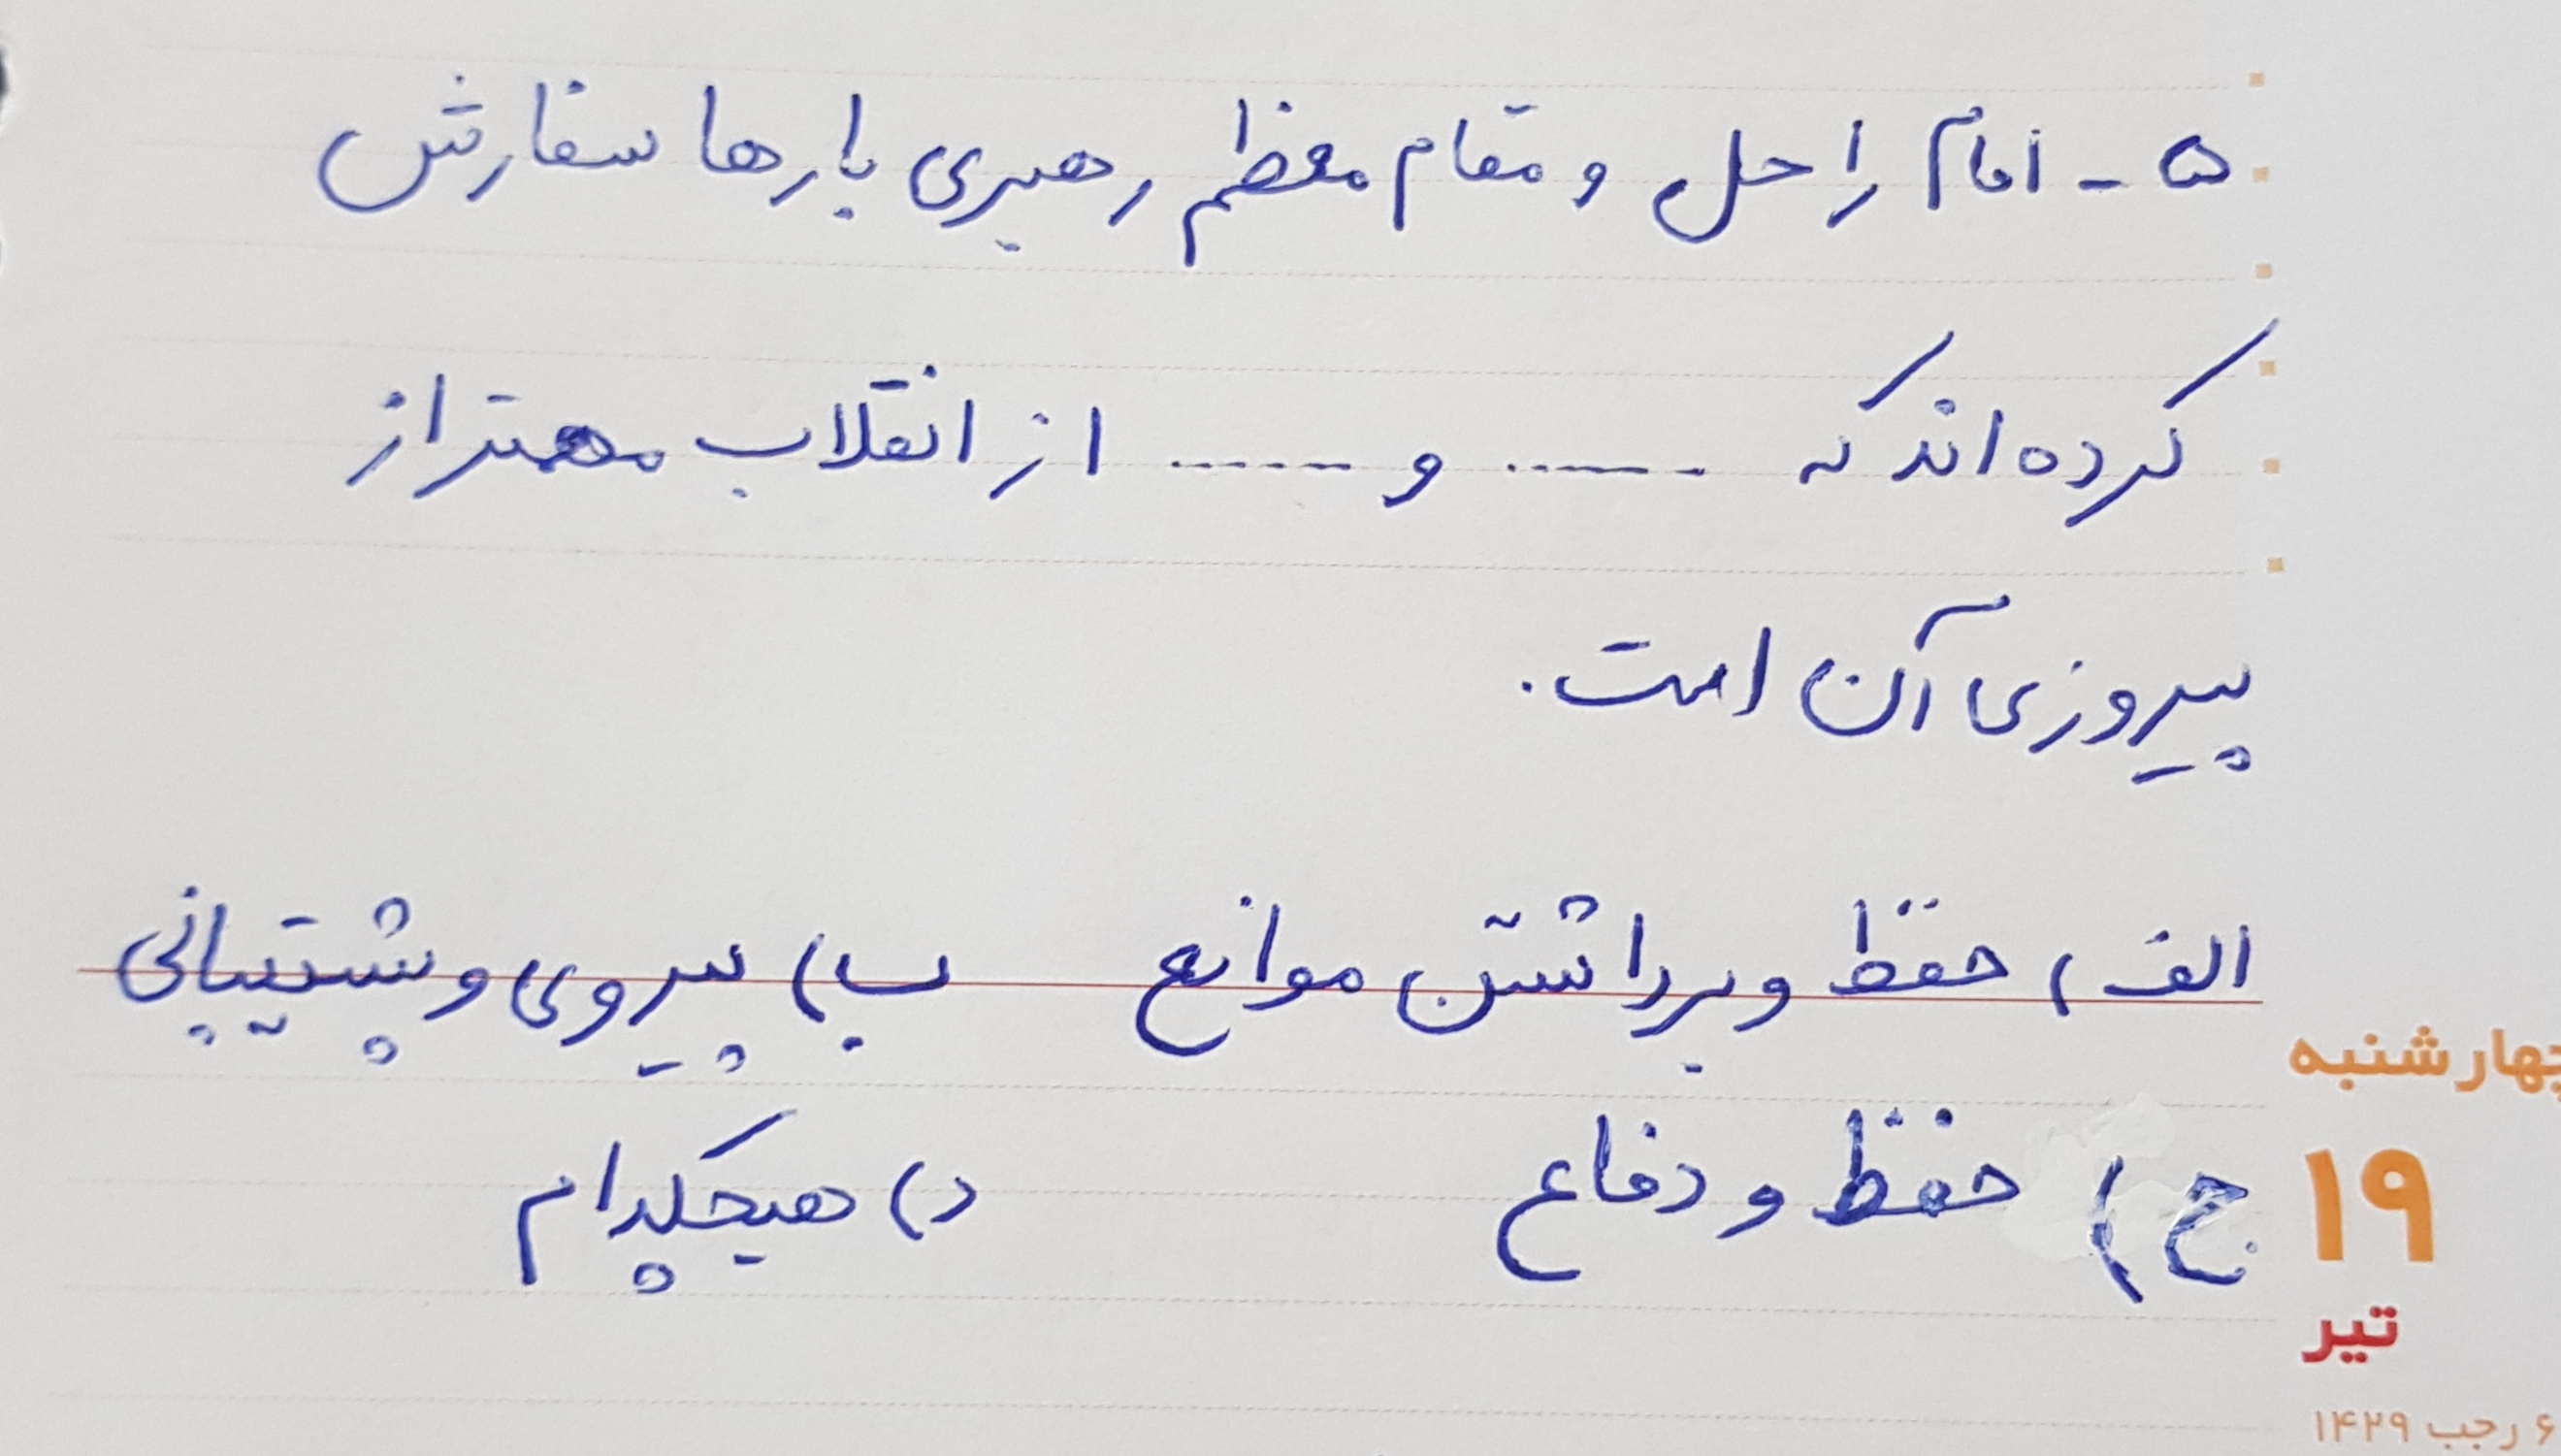 ۵ - امام راحل و مقام معظم رهبری بارها سفارش
کرده‌اند که ........ و ........ از انقلاب مهمتر از
پیروزی آن است.
الف) حفظ و برداشتن موانع ب) پیروی و پشتیبانی
چهارشنبه
ج) حفظ و دفاع د) هیچکدام
۱۹
تیر
۶ رجب ۱۴۲۹